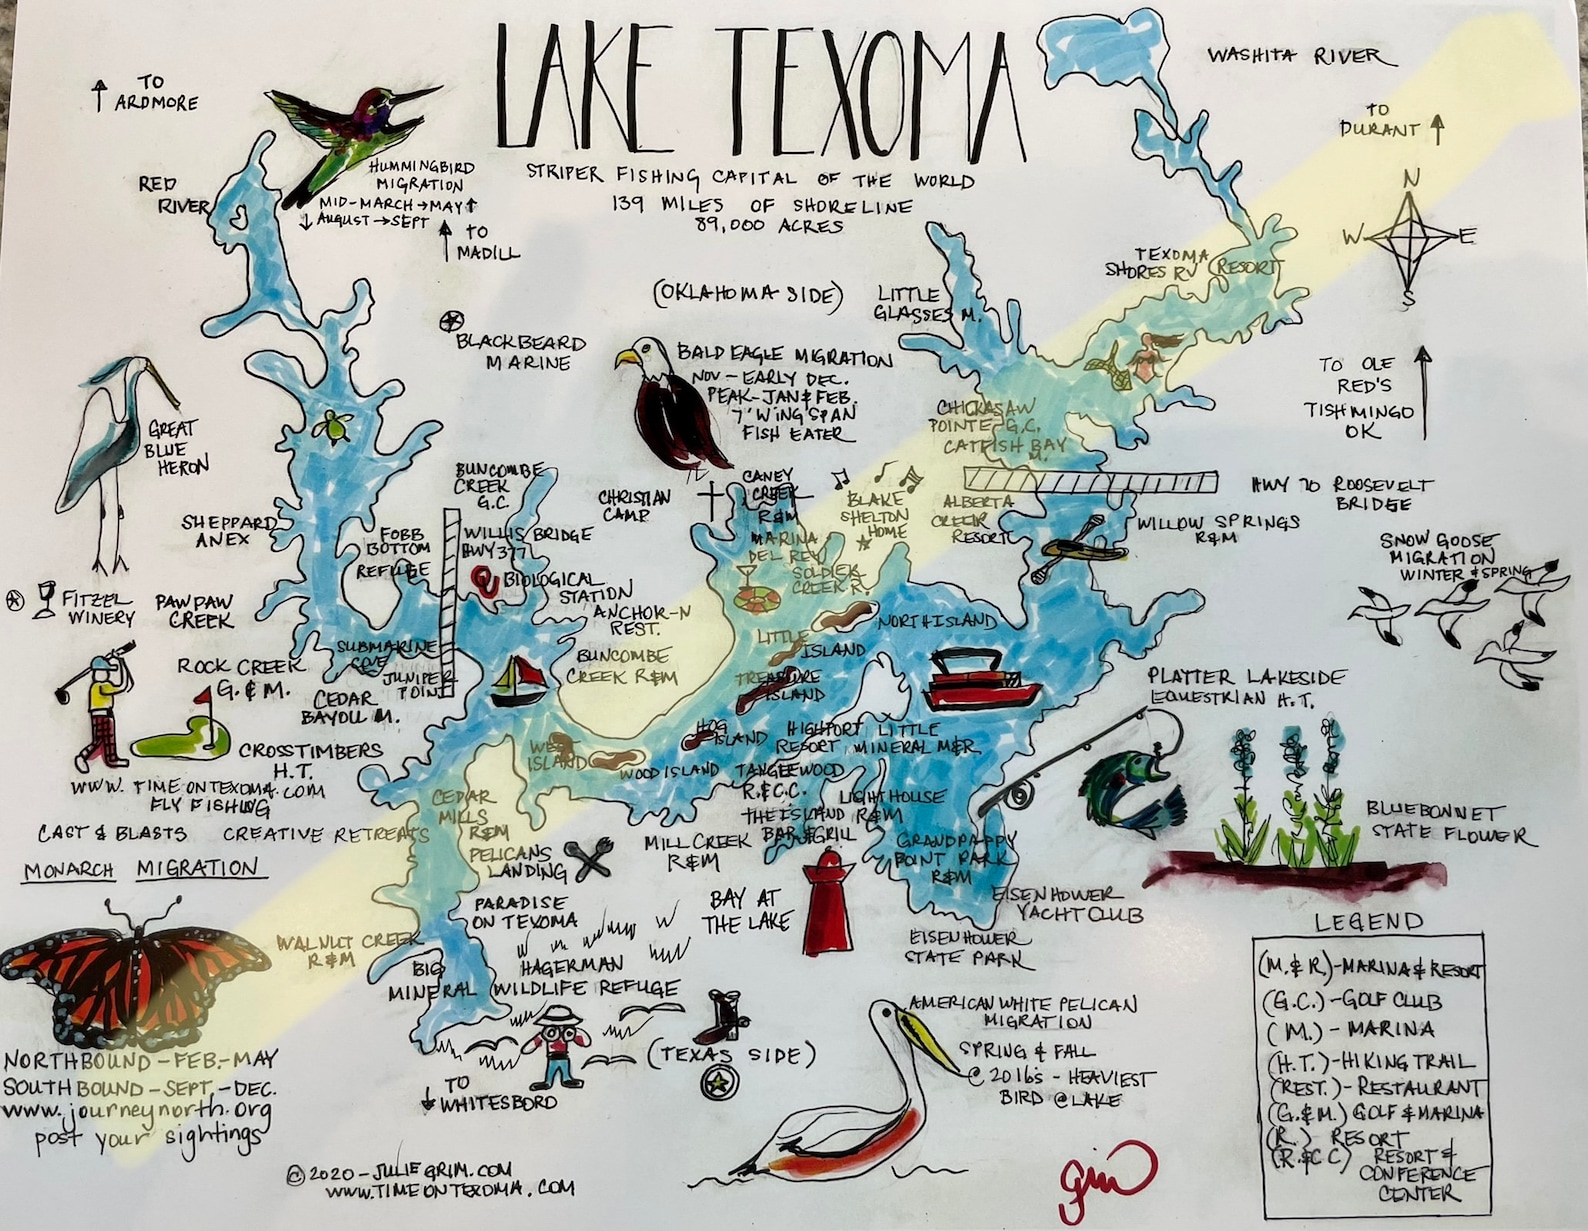 LAKE TEXOMA
STRIPER FISHING CAPITAL OF THE WORLD
139 MILES OF SHORELINE
89,000 ACRES
WASHITA RIVER
TO
ARDMORE
TO
DURANT
RED
RIVER
HUMMINGBIRD
MIGRATION
MID-MARCH→MAY↑
↓AUGUST→SEPT
TO
MADILL
N
W E
S
TEXOMA
SHORES RV RESORT
(OKLAHOMA SIDE)
LITTLE
GLASSES M.
BLACKBEARD
MARINE
BALD EAGLE MIGRATION
NOV-EARLY DEC.
PEAK-JAN & FEB.
7' WING SPAN
FISH EATER
TO OLE
RED'S
TISHMINGO
OK
GREAT
BLUE
HERON
CHICKASAW
POINTE G.C.
CATFISH BAY
M.
BUNCOMBE
CREEK
G.C.
CHRISTIAN
CAMP
CANEY
CREEK
R&M
BLAKE
SHELTON
HOME
ALBERTA
CREEK
RESORT
HWY 70 ROOSEVELT
BRIDGE
SHEPPARD
ANEX
FOBB
BOTTOM
REFUGE
WILLIS BRIDGE
HWY 377
MARINA
DEL REY
SOLDIER
CREEK R.
WILLOW SPRINGS
R&M
SNOW GOOSE
MIGRATION
WINTER & SPRING
BIOLOGICAL
STATION
ANCHOR-N
REST.
FITZEL
WINERY
PAWPAW
CREEK
NORTH ISLAND
LITTLE
ISLAND
SUBMARINE
COVE
JUNIPER
POINT
BUNCOMBE
CREEK R&M
ROCK CREEK
G.&M.
CEDAR
BAYOU M.
TREASURE
ISLAND
PLATTER LAKESIDE
EQUESTRIAN H.T.
CROSSTIMBERS
H.T.
WEST
ISLAND
WOOD ISLAND
HOG
ISLAND
HIGHPORT
RESORT
LITTLE
MINERAL M&R
WWW.TIMEONTEXOMA.COM
FLY FISHING
CAST & BLASTS CREATIVE RETREATS
TANGLEWOOD
R.&C.C.
THE ISLAND
BAR & GRILL
LIGHTHOUSE
R&M
CEDAR
MILLS
R&M
PELICANS
LANDING
MILL CREEK
R&M
GRANDPAPPY
POINT PARK
R&M
BLUEBONNET
STATE FLOWER
MONARCH MIGRATION
PARADISE
ON TEXOMA
BAY AT
THE LAKE
EISENHOWER
YACHT CLUB
EISENHOWER
STATE PARK
WALNUT CREEK
R&M
BIG
MINERAL
HAGERMAN
WILDLIFE REFUGE
(TEXAS SIDE)
TO
WHITESBORO
AMERICAN WHITE PELICAN
MIGRATION
SPRING & FALL
@ 20 lbs - HEAVIEST
BIRD @ LAKE
NORTHBOUND-FEB.-MAY
SOUTHBOUND-SEPT.-DEC.
www.journeynorth.org
post your sightings
LEGEND
(M.&R.)-MARINA & RESORT
(G.C.)-GOLF CLUB
(M.)-MARINA
(H.T.)-HIKING TRAIL
(REST.)-RESTAURANT
(G.&M.) GOLF & MARINA
(R.) RESORT
(R.&CC) RESORT &
CONFERENCE
CENTER
© 2020-JULIEGRIM.COM
WWW.TIMEONTEXOMA.COM